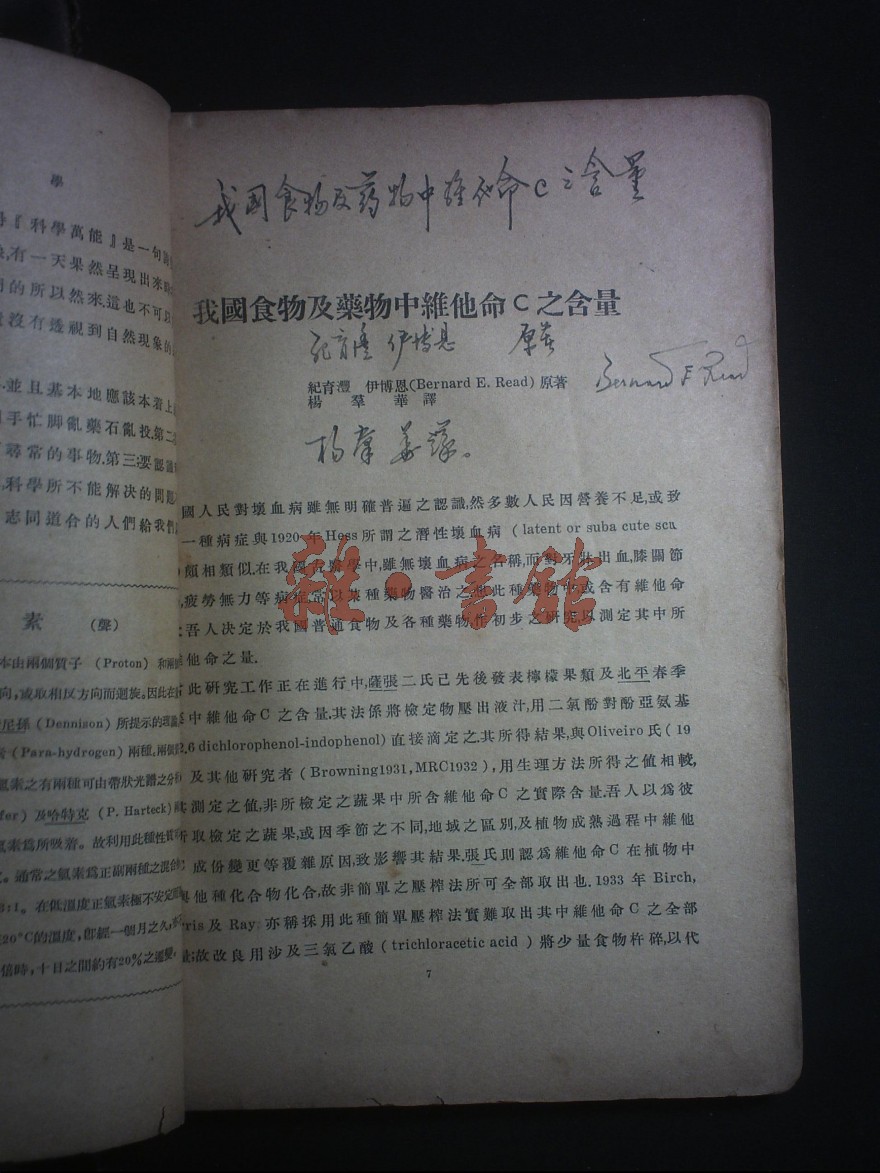 學
『科學萬能』是一句
有一天果然呈現出來
的所以然來.這也不可
沒有透視到自然現象的
並且基本地應該本着上
手忙脚亂藥石亂投.第二
尋常的事物.第三:要認識
科學所不能解决的問題
志同道合的人們給我們
素 (聲)
本由兩個質子 (Proton) 和兩
向，或取相反方向而迴旋。因此在
尼孫 (Dennison) 所提示的理論
(Para-hydrogen) 兩種。兩個
氫素之有兩種可由帶狀光譜之分
fer) 及哈特克 (P. Harteck)
氫素爲所吸着。故利用此種性質
通常之氫素爲正副兩種之混合
3:1。在低溫度正氫素極不安定
20°C的溫度，卽經一個月之久
倍時，十日之間約有20%之遷變，
我国食物及药物中维他命C之含量
我國食物及藥物中維他命C之含量
紀育澧 伊博恩 原著
紀育灃 伊博恩(Bernard E. Read) 原著
Bernard E Read
楊羣華譯
杨羣華譯。
國人民對壞血病雖無明確普遍之認識,然多數人民因營養不足,或致
一種病症與1920年Hess所謂之潛性壞血病 (latent or suba cute scu
頗相類似.在我國古醫學中,雖無壞血病之名稱,而對牙牀出血,膝關節
疲勞無力等病症,常以某種藥物醫治之.想此種藥物中,或含有維他命
吾人决定於我國普通食物及各種藥物作初步之研究,以測定其中所
他命之量.
此研究工作正在進行中,薩張二氏已先後發表檸檬果類及北平春季
中維他命C之含量.其法係將檢定物壓出液汁,用二氯酚對酚亞氨基
2.6 dichlorophenol-indophenol) 直接滴定之.其所得結果,與Oliveiro氏(19
及其他研究者 (Browning1931, MRC1932),用生理方法所得之值相較,
測定之值,非所檢定之蔬果中所含維他命C之實際含量.吾人以爲彼
取檢定之蔬果,或因季節之不同,地域之區別,及植物成熟過程中維他
成份變更等覆雜原因,致影響其結果.張氏則認爲維他命C在植物中
他種化合物化合,故非簡單之壓榨法所可全部取出也. 1933年Birch,
ris及 Ray 亦稱採用此種簡單壓榨法實難取出其中維他命C之全部
故改良用涉及三氯乙酸 (trichloracetic acid) 將少量食物杵碎,以代
7
雜·書館